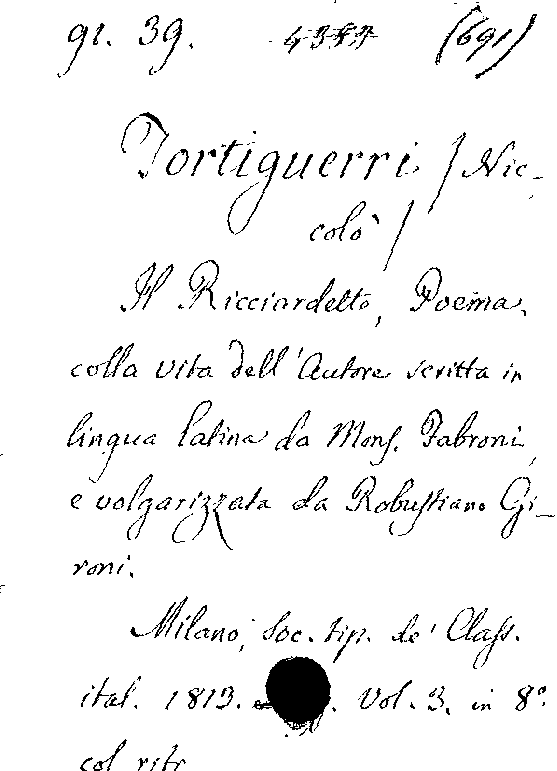 gi. 39. (691)
Fortiguerri / Nic-
colò /
Il Ricciardetto, Poema,
colla vita dell'Autore scritta in
lingua latina da Mons. Fabroni,
e volgarizzata da Robustiano Gi-
roni.
Milano, Soc. tip. de' Class.
ital. 1813. Vol. 3. in 8º
col ritr